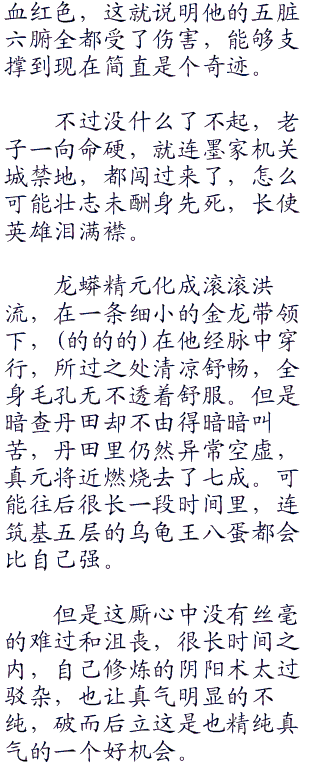 血红色，这就说明他的五脏
六腑全都受了伤害，能够支
撑到现在简直是个奇迹。
不过没什么了不起，老
子一向命硬，就连墨家机关
城禁地，都闯过来了，怎么
可能壮志未酬身先死，长使
英雄泪满襟。
龙蟒精元化成滚滚洪
流，在一条细小的金龙带领
下，(的的的)在他经脉中穿
行，所过之处清凉舒畅，全
身毛孔无不透着舒服。但是
暗查丹田却不由得暗暗叫
苦，丹田里仍然异常空虚，
真元将近燃烧去了七成。可
能往后很长一段时间里，连
筑基五层的乌龟王八蛋都会
比自己强。
但是这厮心中没有丝毫
的难过和沮丧，很长时间之
内，自己修炼的阴阳术太过
驳杂，也让真气明显的不
纯，破而后立这是也精纯真
气的一个好机会。